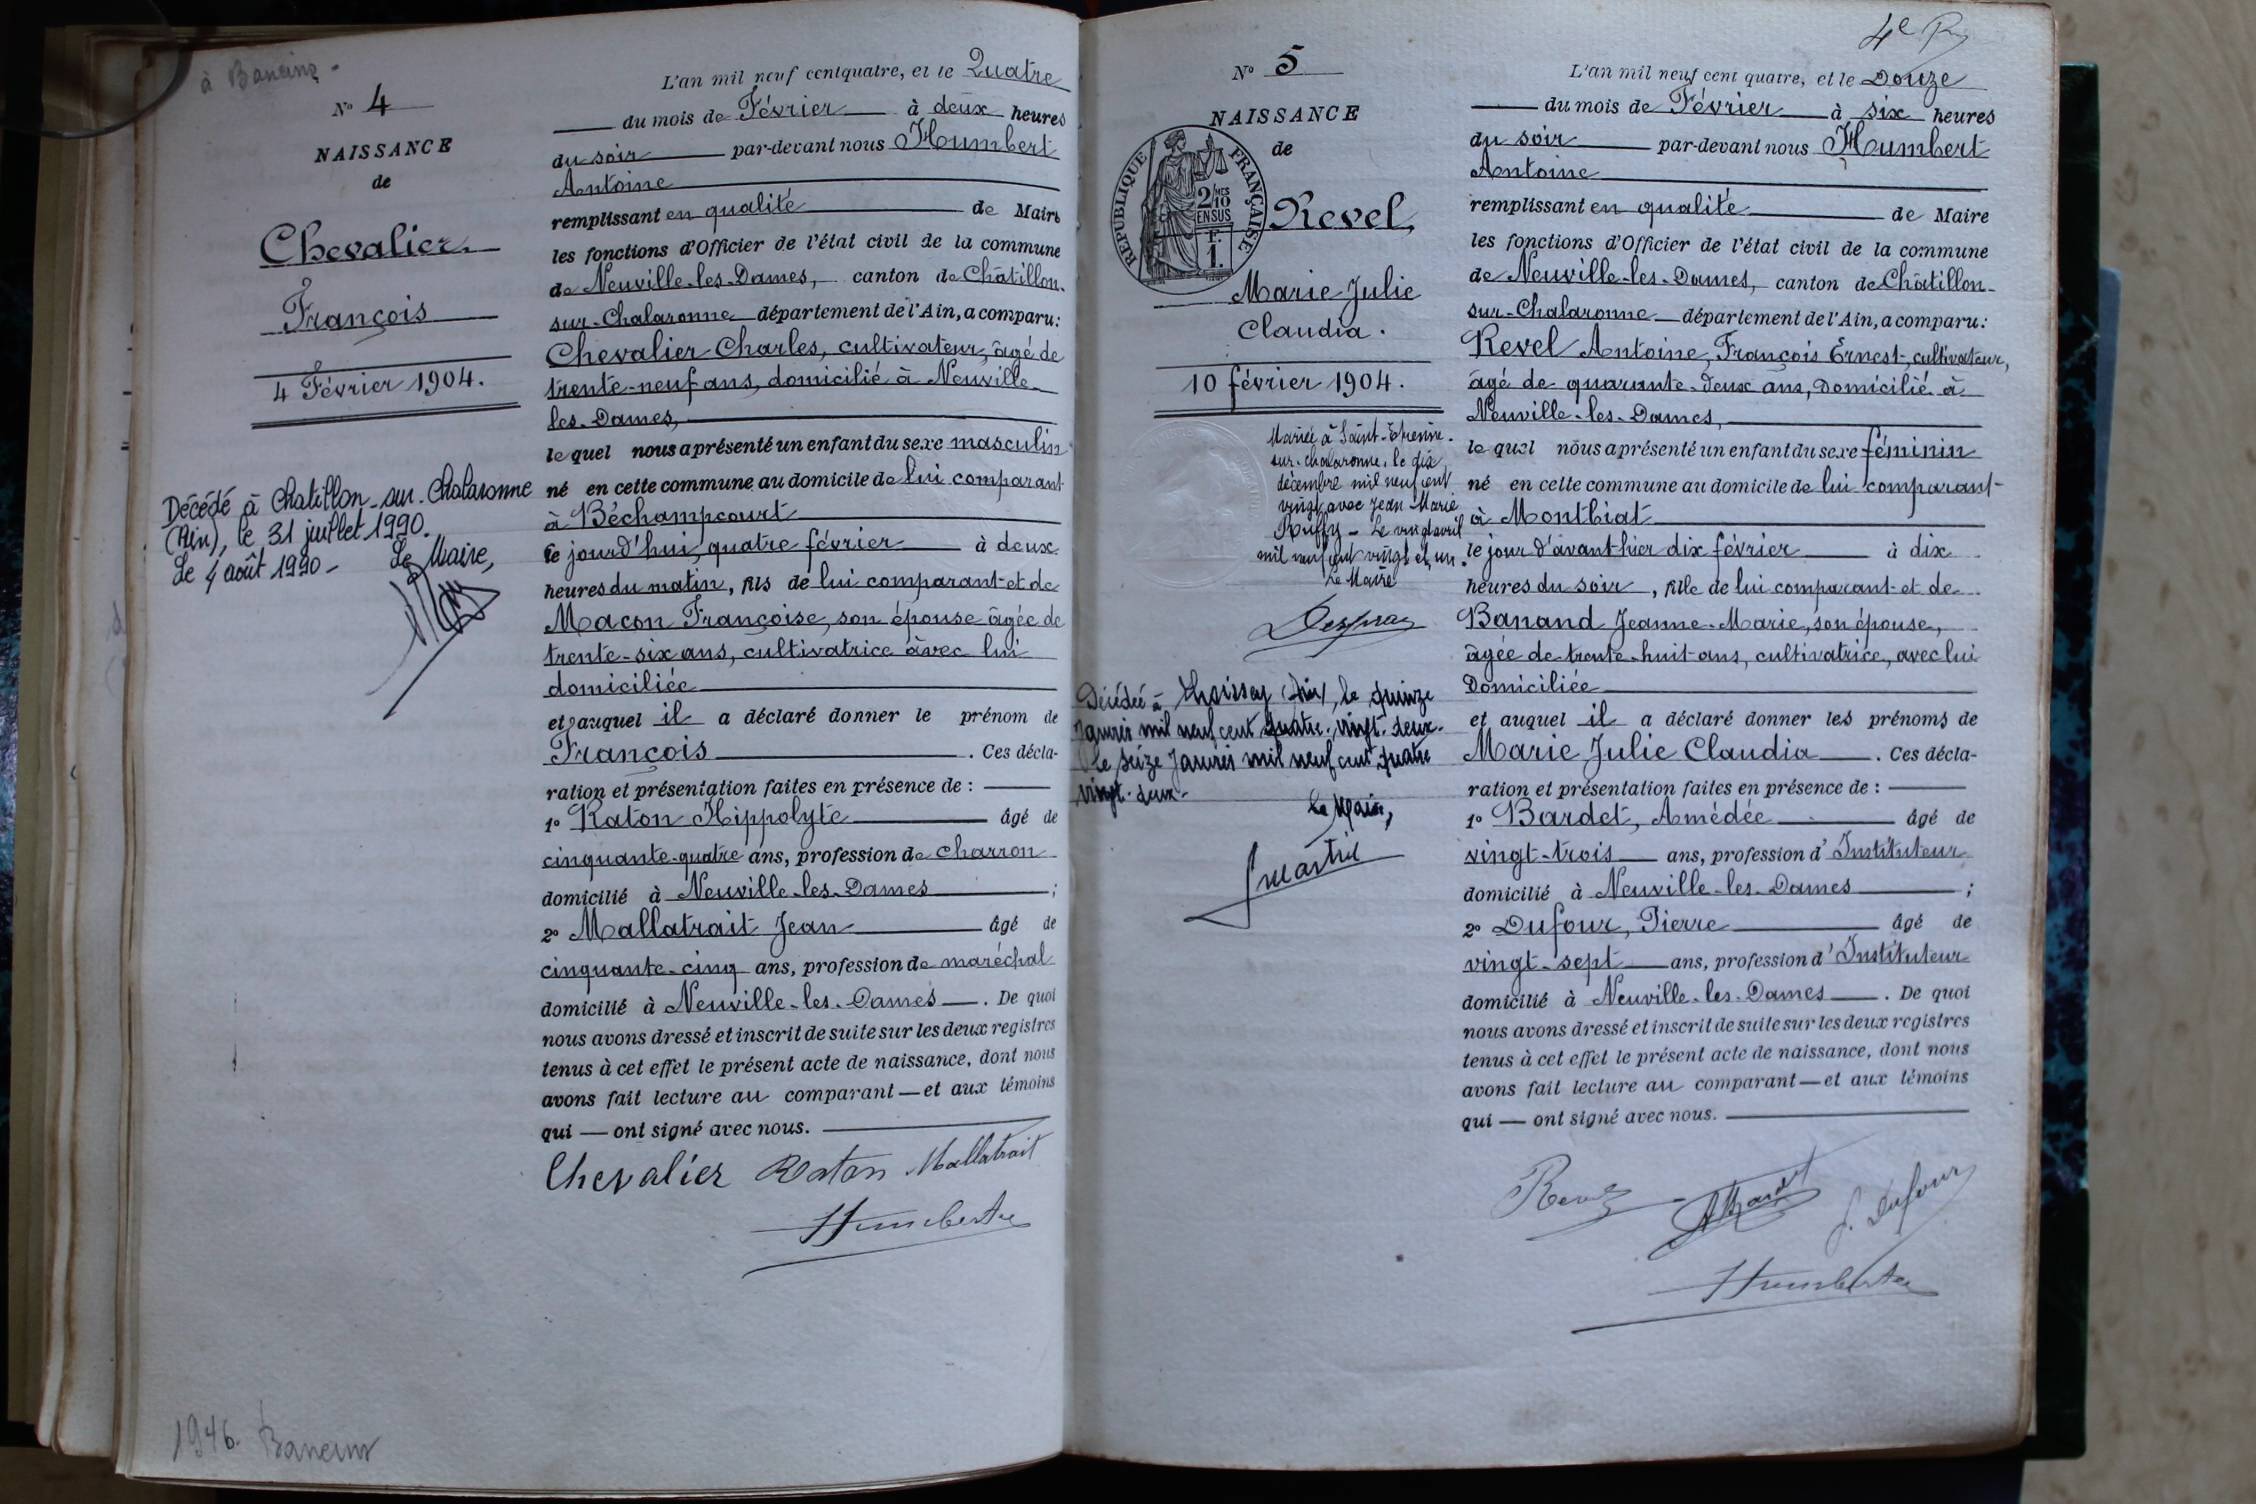 à Baneins -
N° 4
NAISSANCE
de
Chevalier.
François
4 Février 1904.
Décédé à Chatillon-sur-Chalaronne
(Ain), le 31 juillet 1990.
Le 4 août 1990 - Le Maire,
1946. Baneins
L'an mil neuf cent quatre, et le Quatre
du mois de Février à deux heures
du soir par-devant nous Humbert
Antoine
remplissant en qualité de Maire
les fonctions d'Officier de l'état civil de la commune
de Neuville-les-Dames, canton de Châtillon-
sur-Chalaronne département de l'Ain, a comparu:
Chevalier Charles, cultivateur, âgé de
trente-neuf ans, domicilié à Neuville-
les-Dames,
le quel nous a présenté un enfant du sexe masculin
né en cette commune au domicile de lui comparant
à Béchampcourt
le jourd'hui, quatre février à deux
heures du matin, fils de lui comparant et de
Macon Françoise, son épouse âgée de
trente-six ans, cultivatrice avec lui
domiciliée
et auquel il a déclaré donner le prénom de
François . Ces décla-
ration et présentation faites en présence de :
1° Raton Hippolyte âgé de
cinquante-quatre ans, profession de charron
domicilié à Neuville-les-Dames ;
2° Mallatrait Jean âgé de
cinquante-cinq ans, profession de maréchal
domicilié à Neuville-les-Dames . De quoi
nous avons dressé et inscrit de suite sur les deux registres
tenus à cet effet le présent acte de naissance, dont nous
avons fait lecture au comparant — et aux témoins
qui — ont signé avec nous.
Chevalier Raton Mallatrait
Humbert
4e
N° 5
NAISSANCE
de
RÉPUBLIQUE FRANÇAISE
2/10 MES
EN SUS
F.
1.
Revel,
Marie Julie
Claudia.
10 février 1904.
Mariée à Saint-Etienne-
sur-chalaronne, le dix
décembre mil neuf cent
vingt avec Jean Marie
Ruffy - Le vingt avril
mil neuf cent vingt et un.
Le Maire
Décédée à Thoissey (Ain), le quinze
Janvier mil neuf cent quatre-vingt-deux.
le seize Janvier mil neuf cent quatre
vingt-deux-
Le Maire,
L'an mil neuf cent quatre, et le Douze
du mois de Février à six heures
du soir par-devant nous Humbert
Antoine
remplissant en qualité de Maire
les fonctions d'Officier de l'état civil de la commune
de Neuville-les-Dames, canton de Châtillon-
sur-Chalaronne département de l'Ain, a comparu:
Revel Antoine, François Ernest, cultivateur,
âgé de quarante-deux ans, Domicilié à
Neuville-les-Dames,
le quel nous a présenté un enfant du sexe féminin
né en cette commune au domicile de lui comparant
à Monthiat
le jour d'avant hier dix février à dix
heures du soir, fille de lui comparant et de
Banand Jeanne-Marie, son épouse,
âgée de trente-huit ans, cultivatrice, avec lui
Domiciliée
et auquel il a déclaré donner les prénoms de
Marie Julie Claudia . Ces décla-
ration et présentation faites en présence de :
1° Bardet, Amédée âgé de
vingt-trois ans, profession d'Instituteur
domicilié à Neuville-les-Dames ;
2° Dufour, Pierre âgé de
vingt-sept ans, profession d'Instituteur
domicilié à Neuville-les-Dames . De quoi
nous avons dressé et inscrit de suite sur les deux registres
tenus à cet effet le présent acte de naissance, dont nous
avons fait lecture au comparant — et aux témoins
qui — ont signé avec nous.
Revel ABardet P. Dufour
Humbert